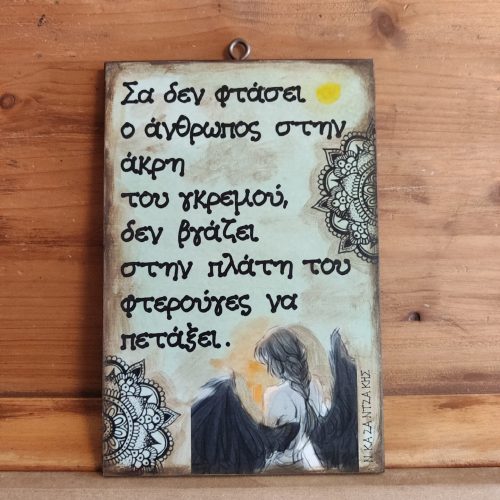 Σα δεν φτάσει
ο άνθρωπος στην
άκρη
του γκρεμού,
δεν βγάζει
στην πλάτη του
φτερούγες να
πετάξει.
Ν. ΚΑΖΑΝΤΖΑΚΗΣ